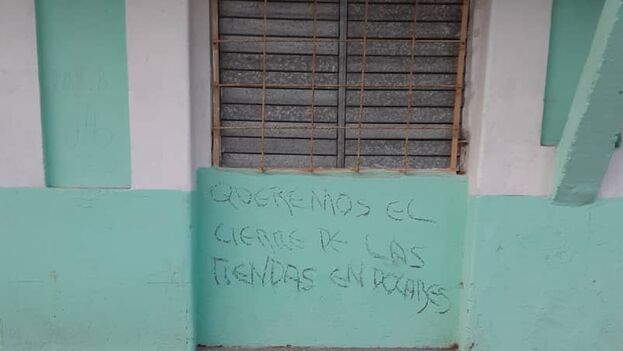 QUEREMOS EL
CIERRE DE LAS
TIENDAS EN DOLARES